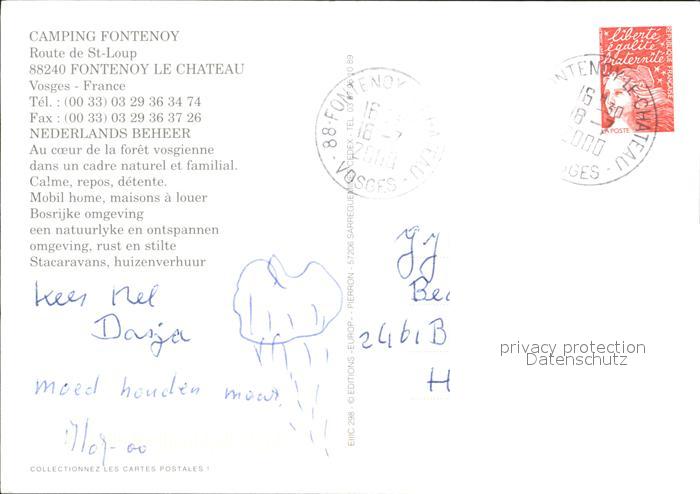 CAMPING FONTENOY
Route de St-Loup
88240 FONTENOY LE CHATEAU
Vosges - France
Tél. : (00 33) 03 29 36 34 74
Fax : (00 33) 03 29 36 37 26
NEDERLANDS BEHEER
Au cœur de la forêt vosgienne
dans un cadre naturel et familial.
Calme, repos, détente.
Mobil home, maisons à louer
Bosrijke omgeving
een natuurlyke en ontspannen
omgeving, rust en stilte
Stacaravans, huizenverhuur
Kees Nel
Dasja
moed houden maar.
COLLECTIONNEZ LES CARTES POSTALES !
EIIIC 298 - © EDITIONS "EUROP" - PIERRON - 57206 SARREGUEMINES CEDEX - TEL.
88-FONTENOY CHATEAU
16
18 -7
2000
- VOSGES -
liberté
égalité
fraternité
REPUBLIQUE FRANÇAISE
LA POSTE
NTENOY-LE-CHATEAU
16 30
18 -
2000
OSGES -
2461 B
H
privacy protection
Datenschutz